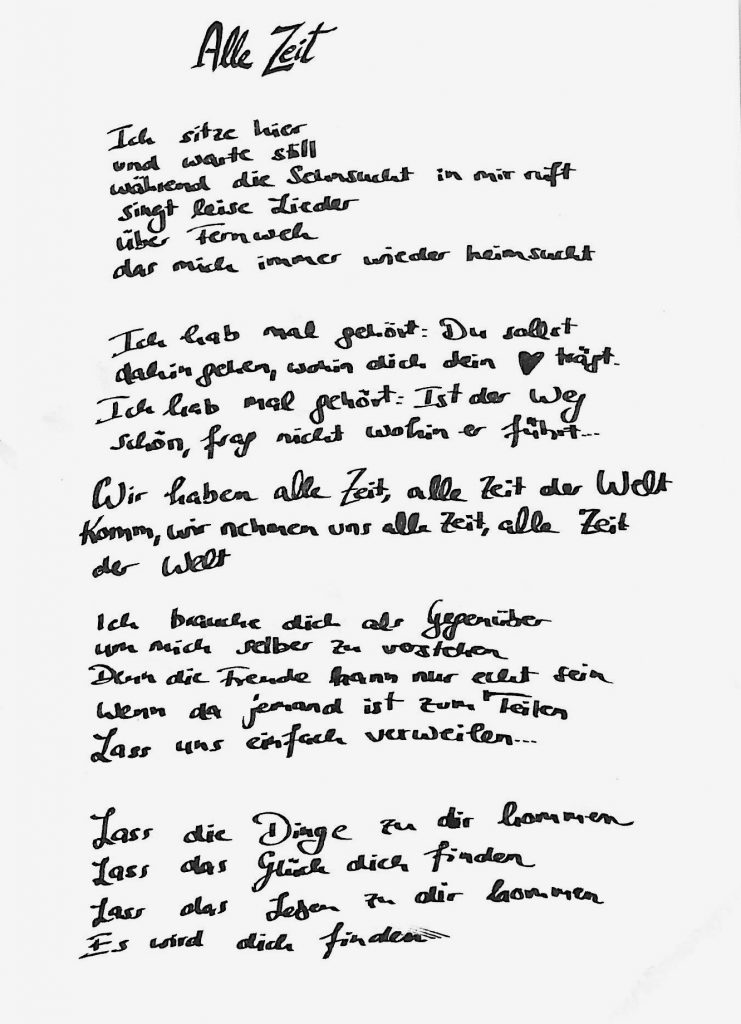 Alle Zeit
Ich sitze hier
und warte still
während die Sehnsucht in mir ruft
singt leise Lieder
über Fernweh
das mich immer wieder heimsucht
Ich hab mal gehört: Du sollst
dahin gehen, wohin dich dein ♥ trägt.
Ich hab mal gehört: Ist der Weg
schön, frag nicht wohin er führt...
Wir haben alle Zeit, alle Zeit der Welt
Komm, wir nehmen uns alle Zeit, alle Zeit
der Welt
Ich brauche dich als Gegenüber
um mich selber zu verstehen
Denn die Freude kann nur echt sein
Wenn da jemand ist zum Teilen
Lass uns einfach verweilen...
Lass die Dinge zu dir kommen
Lass das Glück dich finden
Lass das Leben zu dir kommen
Es wird dich finden